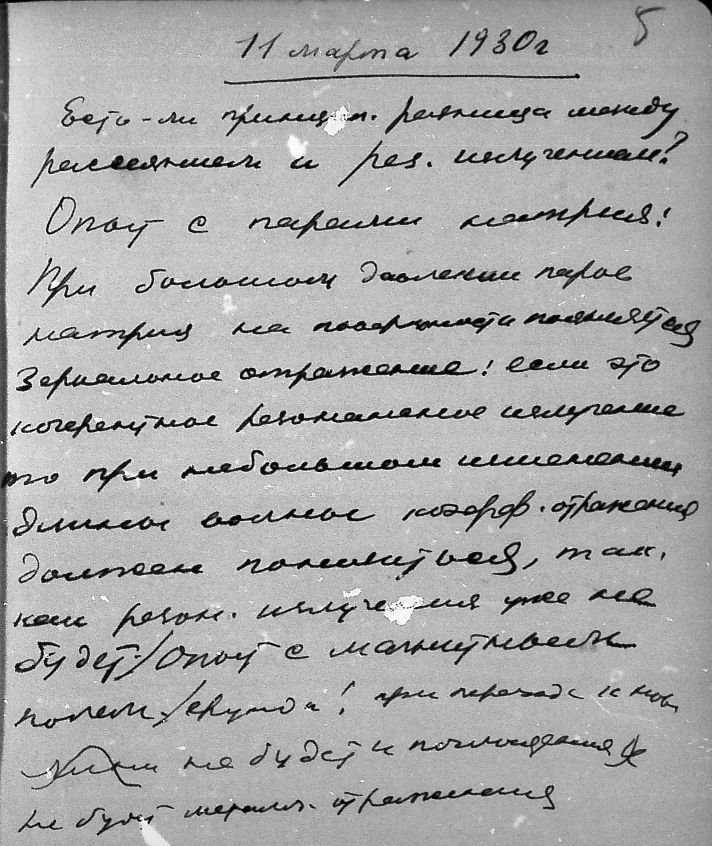 5
11 марта 1930 г
Есть-ли принцип. разница между
рассеянием и рез. излучением?
Опыт с парами натрия!
При большом давлении паров
натрия на поверхности появляется
зеркальное отражение! если это
когерентное резонансное излучение
то при небольшом изменении
длины волны коэфф. отражения
должен понизиться, так.
как резон. излучения уже не
будет / Опыт с магнитным
полем / ерунда! при переходе к
не будет и поглощения
не будет металл. отражения